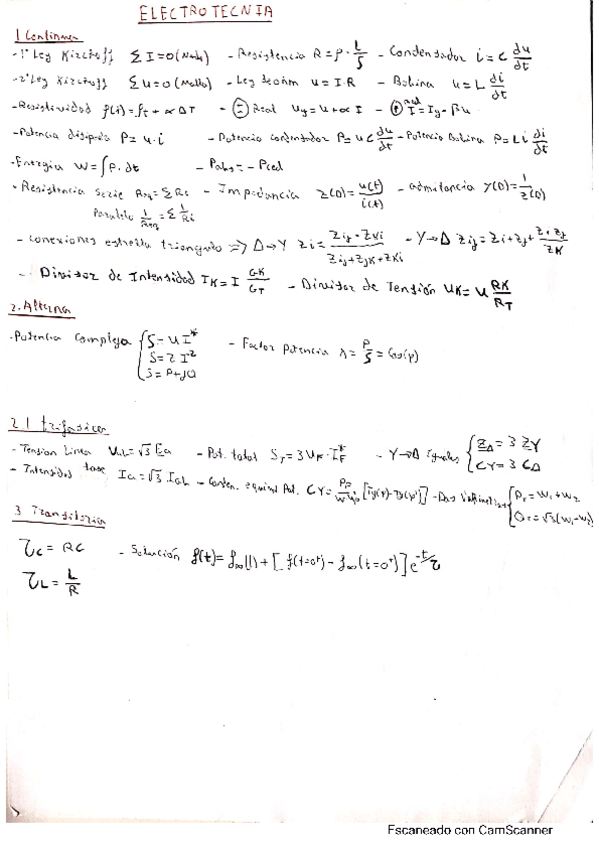 ELECTROTECNIA
1 Continua
- 1ª Ley Kirchoff ΣI=0 (Nudo) - Resistencia R=ρ·L/S - Condensador i=C du/dt
- 2ª Ley Kirchoff Σu=0 (Malla) - Ley de ohm u=I·R - Bobina u=L di/dt
- Resistividad Real
- Potencia disipada P=u·i - Potencia condensador P=uC du/dt - Potencia Bobina P=Li di/dt
- Energia W=∫P·dt - Pabs=-Pced
- Resistencia serie Req=ΣRi - Impedancia Z(D)=u(t)/i(t) - admitancia Y(D)=1/Z(D)
Paralelo 1/Req=Σ1/Ri
- conexiones estrella triangulo => Δ→Y Zi=Zij·Zki/Zij+Zjk+Zki - Y→Δ Zij=Zi+Zj+Zi·Zj/Zk
- Divisor de Intensidad IK=I GK/GT - Divisor de Tensión UK=U RK/RT
2. Alterna
- Potencia compleja S=UI* - Factor potencia λ=P/S=Cos(φ)
S=Z I²
S=P+jQ
2.1 trifasica
- Tension Linea - Pot. total - Y→Δ Iguales ZΔ=3ZY
- Intensidad fase CY=3CΔ
3 Transitorio
τC=RC - Solución f(t)=f∞(t)+[f(t=0⁺)-f∞(t=0⁺)]e^-t/τ
τL=L/R
Escaneado con CamScanner